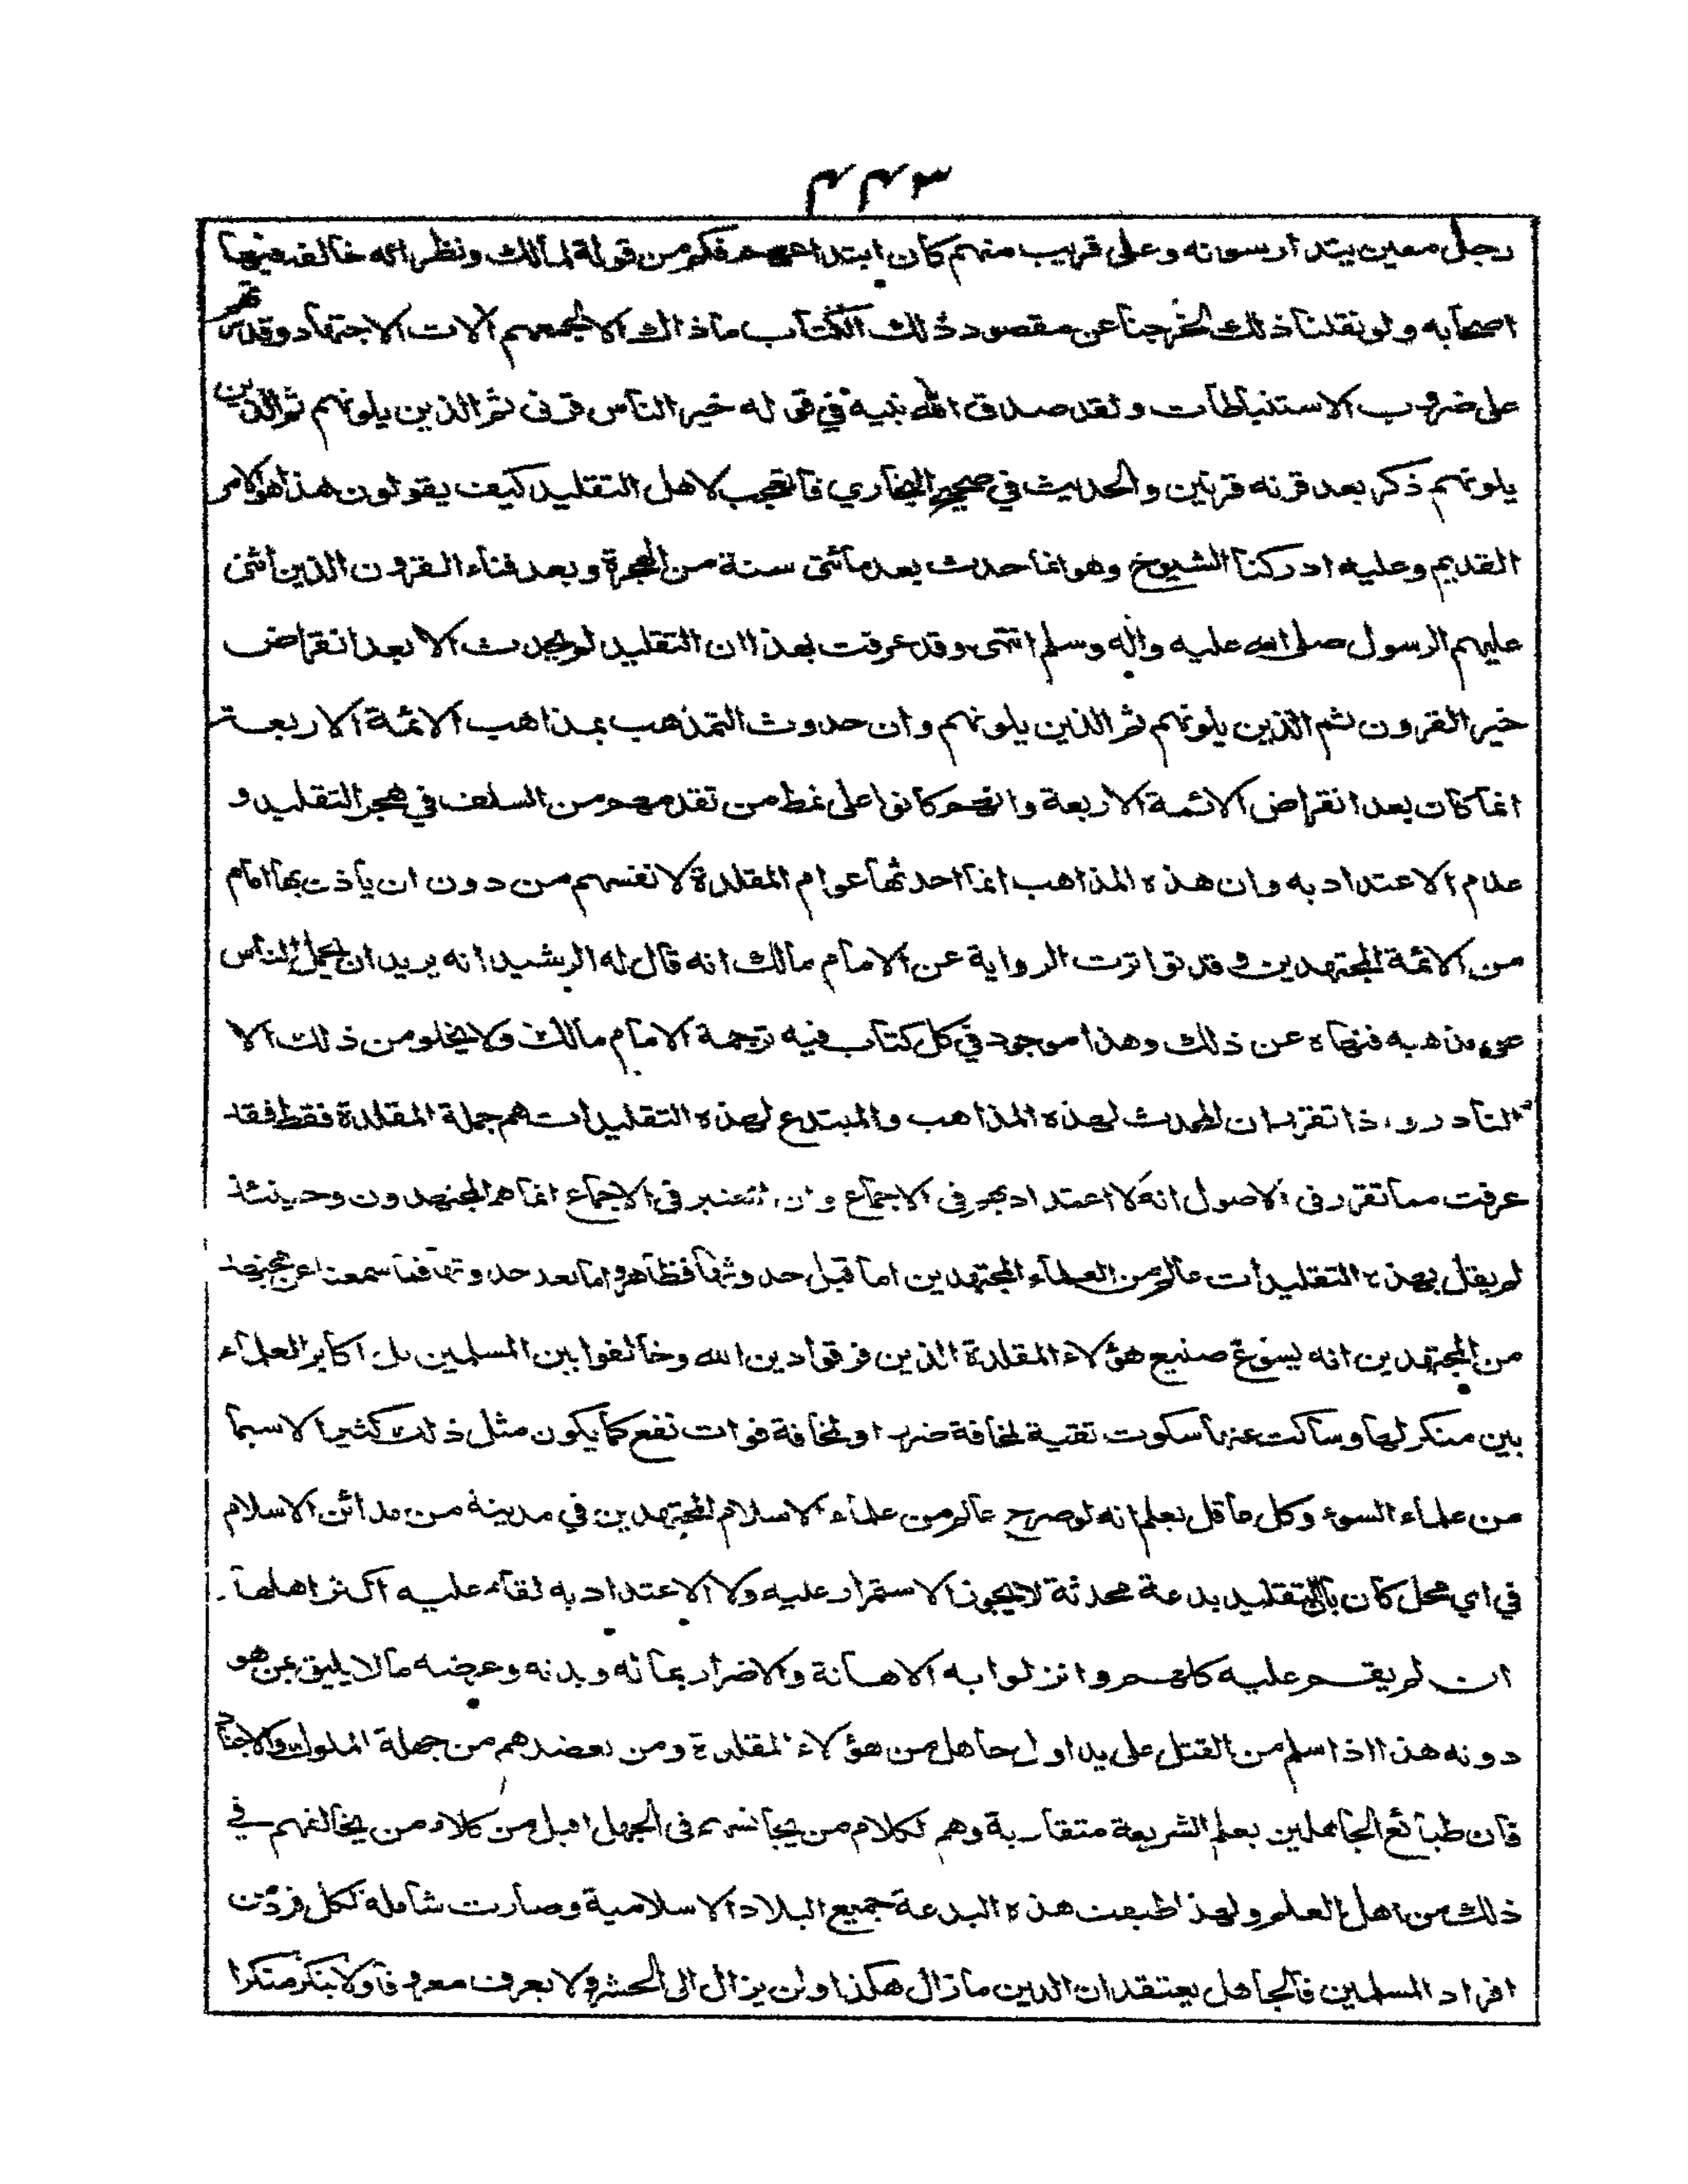 ٣٣٣
رجل معين يتدارسونه وعلى قريب منهم كان ابتداءهم فكم من قولة لمالك ونظرائه خالفه فيها
اصحابه ولو نقلنا ذلك لخرجنا عن مقصود ذلك الكتاب ماذاك الا لجمعهم آلات الاجتهاد وقدرتهم
على ضروب الاستنباطات ولقد صدق الله نبيه في قوله خير الناس قرنى ثم الذين يلونهم ثم الذين
يلونهم ذكر بعد قرنه قرنين والحديث في صحيح البخاري فالعجب لاهل التقليد كيف يقولون هذا هو الامر
القديم وعليه ادركنا الشيوخ وهو انما حدث بعد مائتى سنة من الهجرة وبعد فناء القرون الذين اثنى
عليهم الرسول صلى الله عليه واله وسلم انتهى وقد عرفت بهذا ان التقليد لم يحدث الا بعد انقراض
خير القرون ثم الذين يلونهم ثم الذين يلونهم وان حدوث التمذهب بمذاهب الائمة الاربعة
انما كان بعد انقراض الائمة الاربعة وانهم كانوا على نمط من تقدمهم من السلف في هجر التقليد و
عدم الاعتداد به وان هذه المذاهب انما احدثها عوام المقلدة لانفسهم من دون ان يأذن بها امام
من الائمة المجتهدين وقد تواترت الرواية عن الامام مالك انه قال له الرشيد انه يريد ان يحمل الناس
على مذهبه فنهاه عن ذلك وهذا موجود في كل كتاب فيه ترجمة الامام مالك ولا يخلو من ذلك الا
النادر واذا تقرر ان المحدث لهذه المذاهب والمبتدع لهذه التقليدات هم جملة المقلدة فقط فقد
عرفت مما تقرر فى الاصول انه لا اعتداد بهم فى الاجماع وان المعتبر فى الاجماع انما هم المجتهدون وحينئذ
لم يقل بهذه التقليدات عالم من العلماء المجتهدين اما قبل حدوثها فظاهر واما بعد حدوثها فما سمعنا عن مجتهد
من المجتهدين انه يسوغ صنيع هؤلاء المقلدة الذين فرقوا دين الله وخالفوا بين المسلمين بل اكابر العلماء
بين منكر لها وساكت عنها سكوت تقية لمخافة ضرر او لمخافة فوات نفع كما يكون مثل ذلك كثيرا لا سيما
من علماء السوء وكل عاقل يعلم انه لو صرح عالم من علماء الاسلام المجتهدين في مدينة من مدائن الاسلام
في اي محل كان بان التقليد بدعة محدثة لا يجوز الاستمرار عليه ولا الاعتداد به لقام عليه اكثر اهلها
ان لم يقم عليه كلهم وانزلوا به الاهانة والاضرار بماله وبدنه وعرضه ما لا يليق بمن هو
دونه هذا اذا سلم من القتل على يد اول جاهل من هؤلاء المقلدة ومن يعضدهم من جهلة الملوك والاجناد
فان طبائع الجاهلين بعلم الشريعة متقاربة وهم لكلام من يجانسهم فى الجهل اقبل من كلام من يخالفهم في
ذلك من اهل العلم ولهذا طبقت هذه البدعة جميع البلاد الاسلامية وصارت شاملة لكل فرد من
افراد المسلمين فالجاهل يعتقد ان الدين ما زال هكذا ولن يزال الى الحشر ولا يعرف معروفا ولا ينكر منكرا